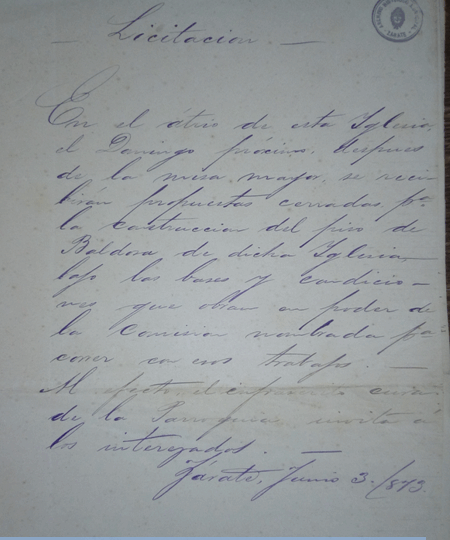 — Licitacion —
En el átrio de esta Iglesia,
el Domingo próximo, despues
de la misa mayor, se reci
birán propuestas cerradas pa.
la contruccion del piso de
Báldosa de dicha Iglesia,
bajo las bases y condicio-
nes que obran en poder de
la Comision nombrada pa
correr con esos trabajos. —
Al efecto, el infrascrito cura
de la Parroquia invita á
los interezados. —
Zárate, Junio 3. /873.